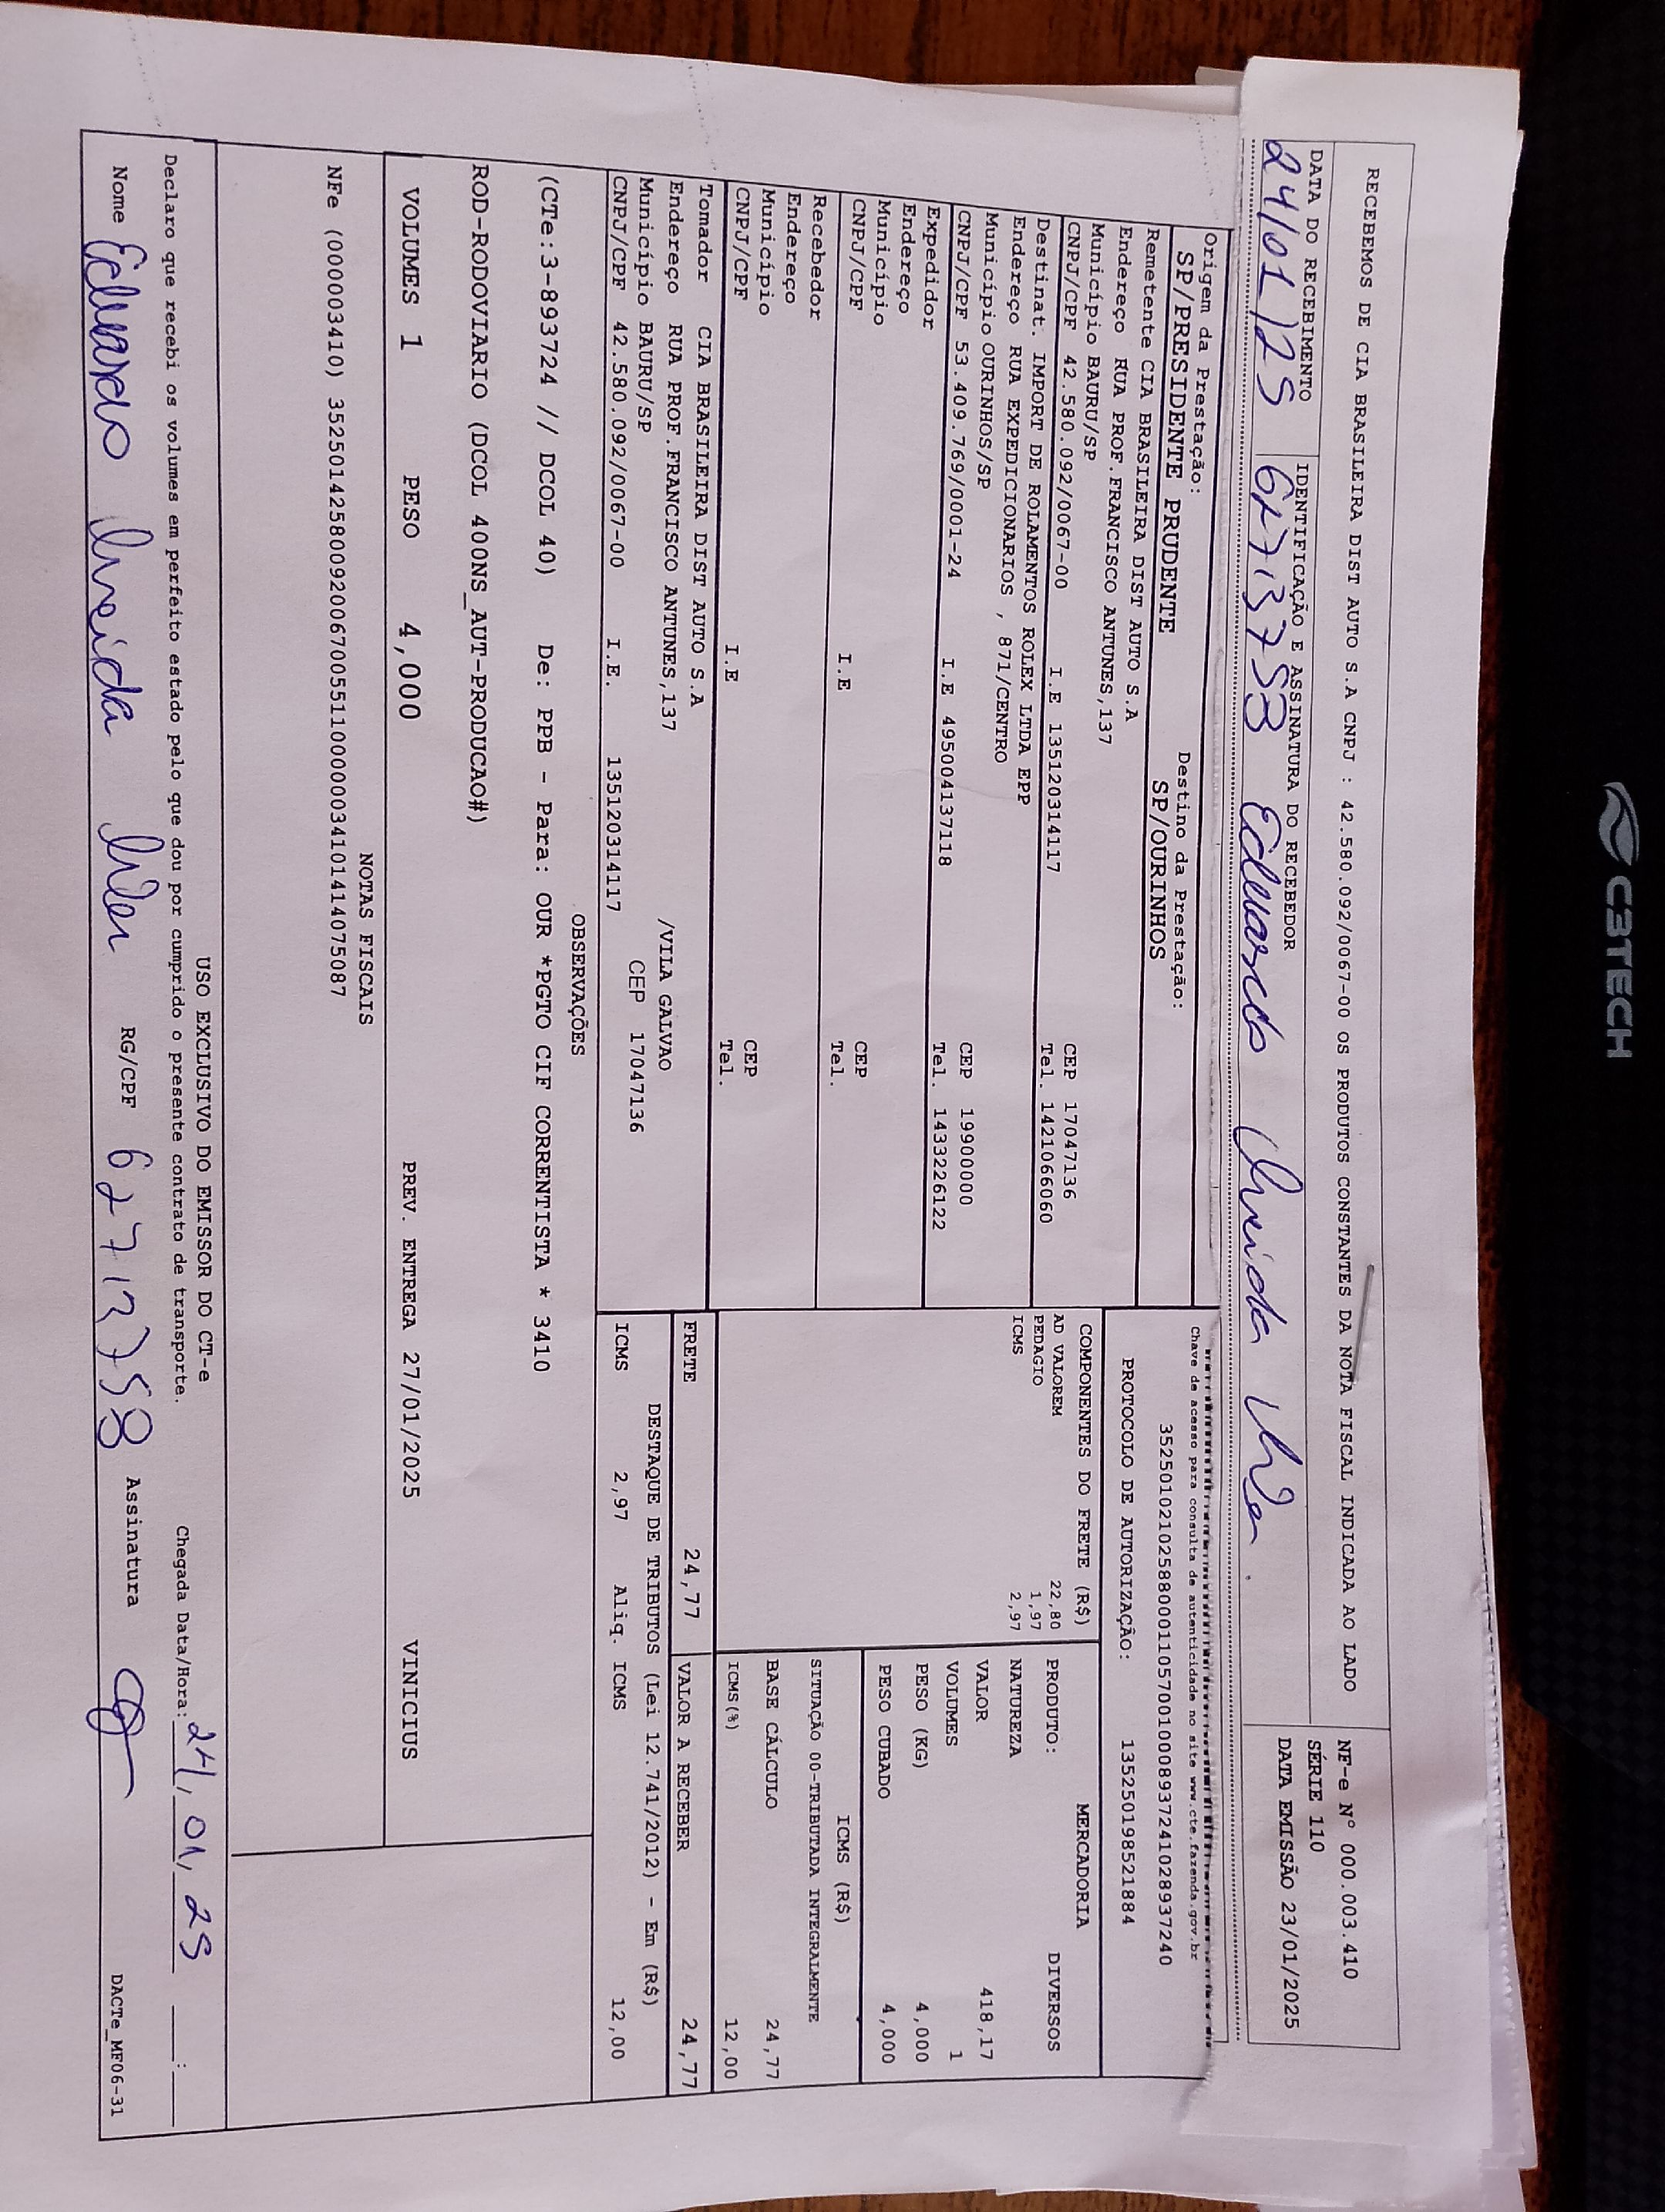 RECEBEMOS DE CIA BRASILEIRA DIST AUTO S.A CNPJ : 42.580.092/0067-00 OS PRODUTOS CONSTANTES DA NOTA FISCAL INDICADA AO LADO
NF-e N° 000.003.410
SÉRIE 110
DATA EMISSÃO 23/01/2025
DATA DO RECEBIMENTO
24/01/25
IDENTIFICAÇÃO E ASSINATURA DO RECEBEDOR
62713758 Eduardo
Origem da Prestação:
SP/PRESIDENTE PRUDENTE
Destino da Prestação:
SP/OURINHOS
Chave de acesso para consulta de autenticidade no site www.cte.fazenda.gov.br
35250102102588000110570010008937241028937240
PROTOCOLO DE AUTORIZAÇÃO: 135250198521884
Remetente CIA BRASILEIRA DIST AUTO S.A
Endereço RUA PROF.FRANCISCO ANTUNES,137
Município BAURU/SP CEP 17047136
CNPJ/CPF 42.580.092/0067-00 I.E 135120314117 Tel. 1421066060
Destinat. IMPORT DE ROLAMENTOS ROLEX LTDA EPP
Endereço RUA EXPEDICIONARIOS , 871/CENTRO
Município OURINHOS/SP CEP 19900000
CNPJ/CPF 53.409.769/0001-24 I.E 495004137118 Tel. 1433226122
Expedidor
Endereço
Município CEP
CNPJ/CPF I.E Tel.
Recebedor
Endereço
Município CEP
CNPJ/CPF I.E Tel.
Tomador CIA BRASILEIRA DIST AUTO S.A
Endereço RUA PROF.FRANCISCO ANTUNES,137 /VILA GALVAO
Município BAURU/SP CEP 17047136
CNPJ/CPF 42.580.092/0067-00 I.E. 135120314117
COMPONENTES DO FRETE (R$)
AD VALOREM 22,80
PEDAGIO 1,97
ICMS 2,97
MERCADORIA
PRODUTO: DIVERSOS
NATUREZA
VALOR 418,17
VOLUMES 1
PESO (KG) 4,000
PESO CUBADO 4,000
ICMS (R$)
SITUAÇÃO 00-TRIBUTADA INTEGRALMENTE
BASE CÁLCULO 24,77
ICMS(%) 12,00
FRETE 24,77
VALOR A RECEBER 24,77
DESTAQUE DE TRIBUTOS (Lei 12.741/2012) - Em (R$)
ICMS 2,97 Aliq. ICMS 12,00
OBSERVAÇÕES
(CTe:3-893724 // DCOL 40) De: PPB - Para: OUR *PGTO CIF CORRENTISTA * 3410
ROD-RODOVIARIO (DCOL 400NS_AUT-PRODUCAO#)
VOLUMES 1 PESO 4,000 PREV. ENTREGA 27/01/2025 VINICIUS
NOTAS FISCAIS
NFe (000003410) 35250142580092006700551100000034101414075087
USO EXCLUSIVO DO EMISSOR DO CT-e
Declaro que recebi os volumes em perfeito estado pelo que dou por cumprido o presente contrato de transporte. Chegada Data/Hora: 24/01/25 __:__
Nome Eduardo RG/CPF 62713758 Assinatura
DACTe_MF06-31
C3TECH